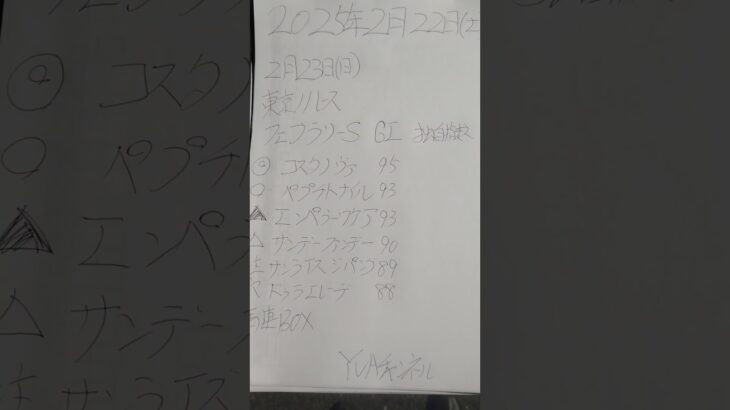 2025年2月22日(土
2月23日(日)
東京11レース
フェブラリーS GI 独自指数
◎ コスタノヴァ 95
○ ペプチドナイル 93
▲ エンペラーワケア 93
△ サンデーファンデー 90
注 サンライズジパング 89
マ ドゥラエレーデ 88
馬連BOX
YUAチャンネル